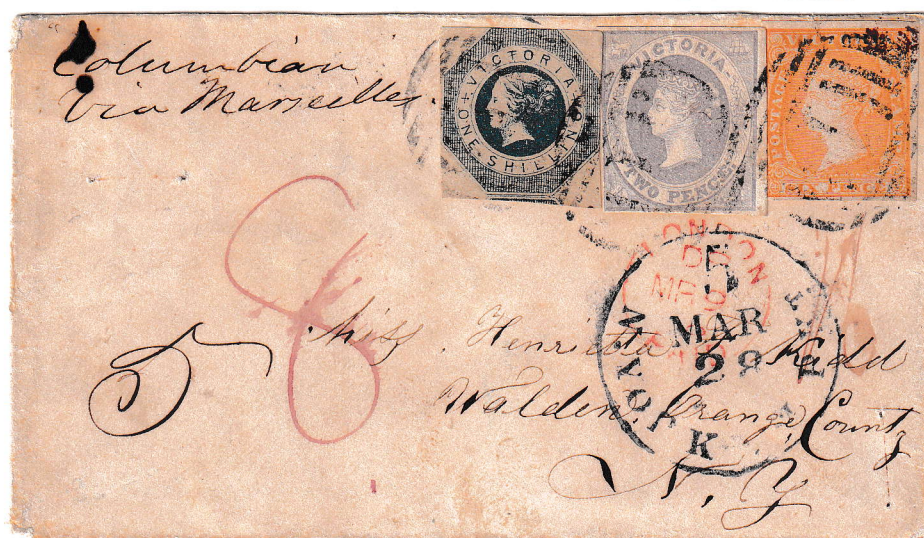 Columbian
Via Marseilles.
VICTORIA
ONE SHILLING
VICTORIA
TWO PENCE
POSTAGE
LONDON
MR
5
MAR
28
NEW YORK
5
8
Miss. Henrietta Kidd
Walden, Orange, County
N. Y